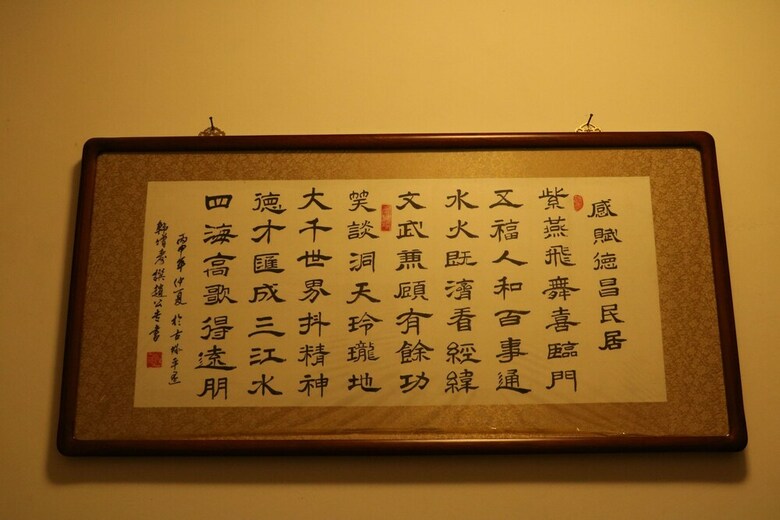 感賦德昌民居
紫燕飛舞喜臨門
五福人和百事通
水火既濟看經緯
文武兼顧有餘功
笑談洞天玲瓏地
大千世界抖精神
德才匯成三江水
四海高歌得遠朋
丙申年仲夏於古城平遥
撰趙公書